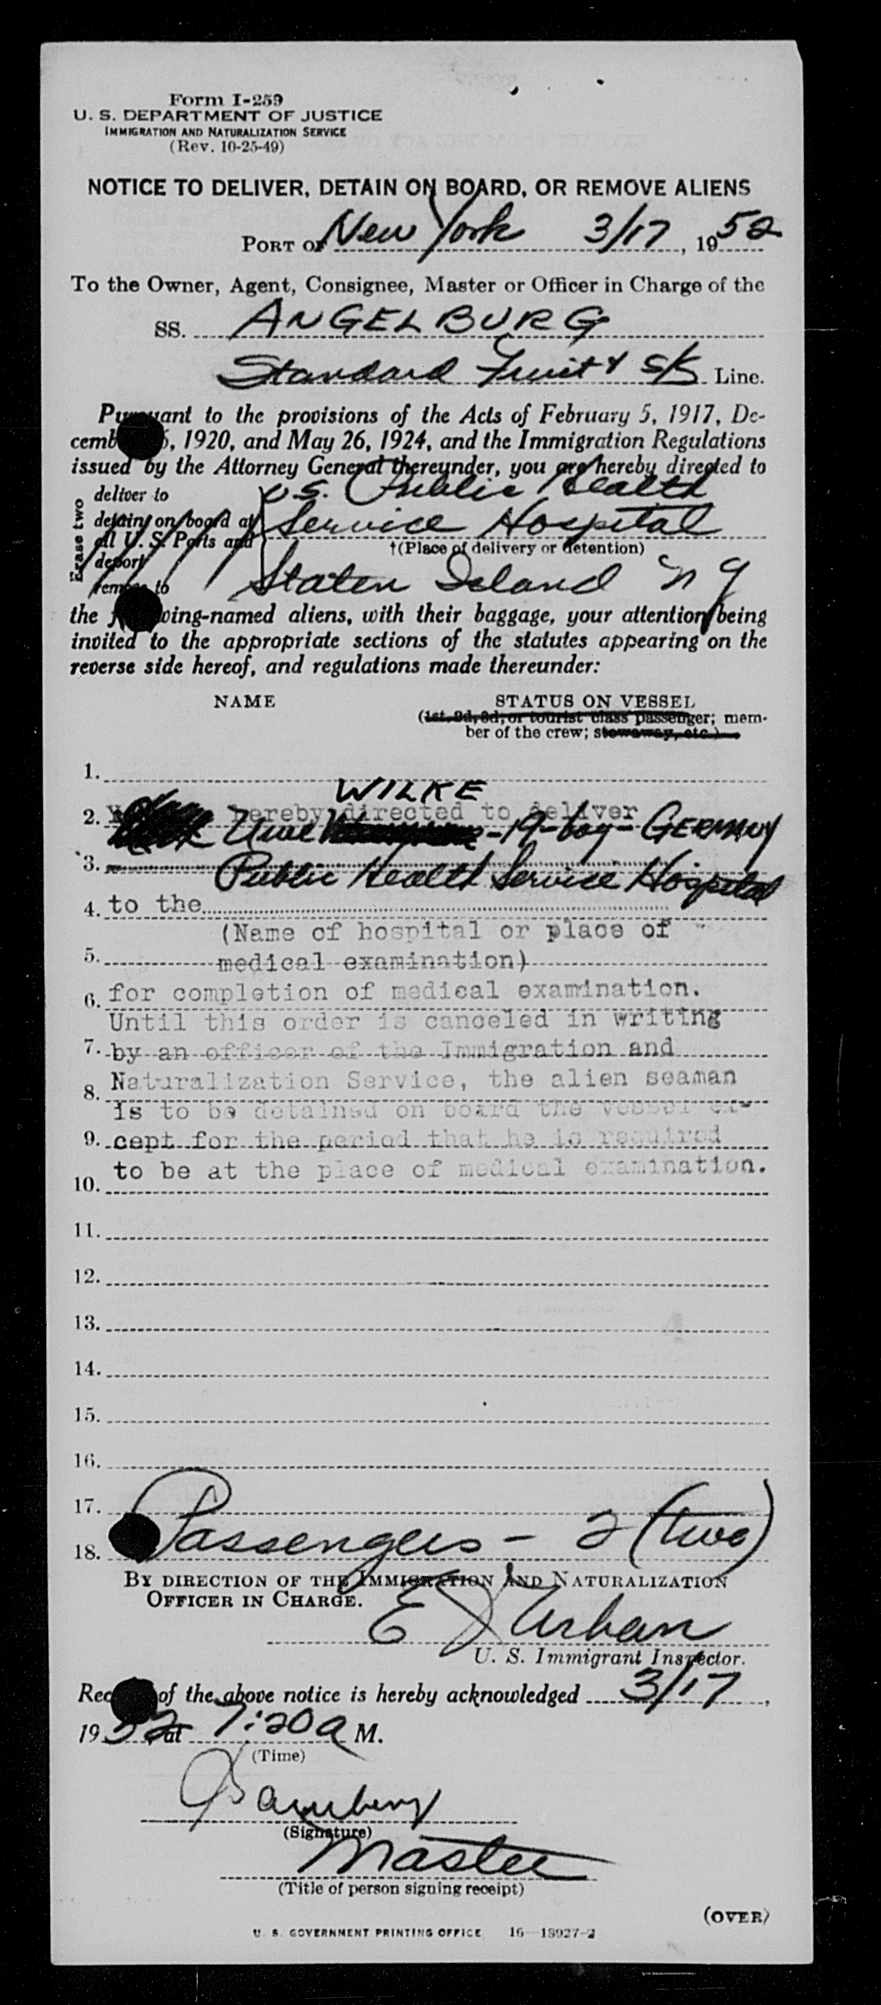 Form I-259
U. S. DEPARTMENT OF JUSTICE
IMMIGRATION AND NATURALIZATION SERVICE
(Rev. 10-25-49)
NOTICE TO DELIVER, DETAIN ON BOARD, OR REMOVE ALIENS
PORT OF New York 3/17, 1952
To the Owner, Agent, Consignee, Master or Officer in Charge of the
SS. ANGELBURG
Standard Fruit & S/S Line.
Pursuant to the provisions of the Acts of February 5, 1917, De-
cember 5, 1920, and May 26, 1924, and the Immigration Regulations
issued by the Attorney General thereunder, you are hereby directed to
Erase two
deliver to
detain on board at
all U. S. Ports and
deport
remove to
U.S. Public Health
Service Hospital
†(Place of delivery or detention)
Staten Island N Y
the following-named aliens, with their baggage, your attention being
invited to the appropriate sections of the statutes appearing on the
reverse side hereof, and regulations made thereunder:
NAME STATUS ON VESSEL
(1st, 2d, 3d, or tourist class passenger; mem-
ber of the crew; stowaway, etc.)
1.
WILKE
2. hereby directed to deliver
Uwe - 19 - boy - GERMANY
3.
Public Health Service Hospital
4. to the
(Name of hospital or place of
5. medical examination)
6. for completion of medical examination.
Until this order is canceled in writing
7. by an officer of the Immigration and
8. Naturalization Service, the alien seaman
is to be detained on board the vessel ex-
9. cept for the period that he is required
to be at the place of medical examination.
10.
11.
12.
13.
14.
15.
16.
17.
18. Passengers - 2 (two)
BY DIRECTION OF THE IMMIGRATION AND NATURALIZATION
OFFICER IN CHARGE.
E J Urban
U. S. Immigrant Inspector.
Receipt of the above notice is hereby acknowledged 3/17,
1952 at 7:20 A M.
(Time)
(Signature)
Master
(Title of person signing receipt)
(OVER)
U. S. GOVERNMENT PRINTING OFFICE 16—18927-2